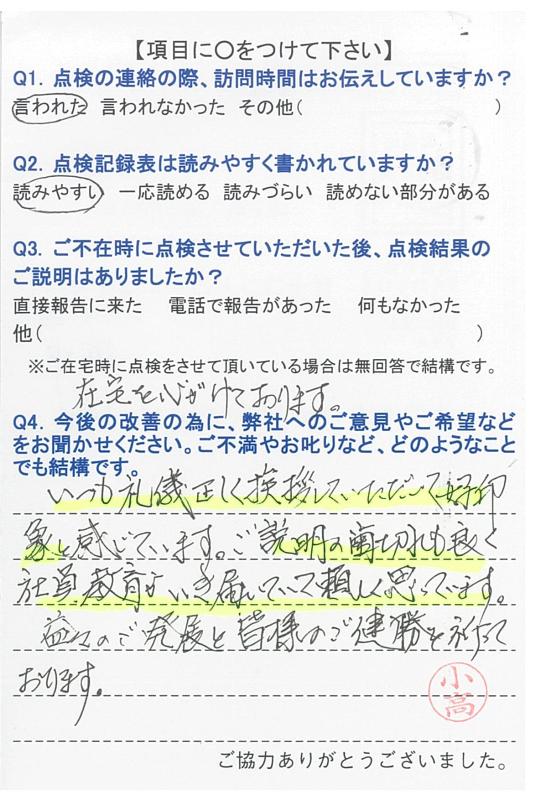 【項目に〇をつけて下さい】
Q1. 点検の連絡の際、訪問時間はお伝えしていますか？
言われた 言われなかった その他( )
Q2. 点検記録表は読みやすく書かれていますか？
読みやすい 一応読める 読みづらい 読めない部分がある
Q3. ご不在時に点検させていただいた後、点検結果の
ご説明はありましたか？
直接報告に来た 電話で報告があった 何もなかった
他( )
※ご在宅時に点検をさせて頂いている場合は無回答で結構です。
在宅を心がけております。
Q4. 今後の改善の為に、弊社へのご意見やご希望など
をお聞かせください。ご不満やお叱りなど、どのようなこと
でも結構です。
いつも礼儀正しく挨拶していただいて好印
象と感じています。ご説明の歯切れも良く
社員教育がいき届いていて頼しく思っています。
益々のご発展と皆様のご健勝を祈って
おります。
小高
ご協力ありがとうございました。